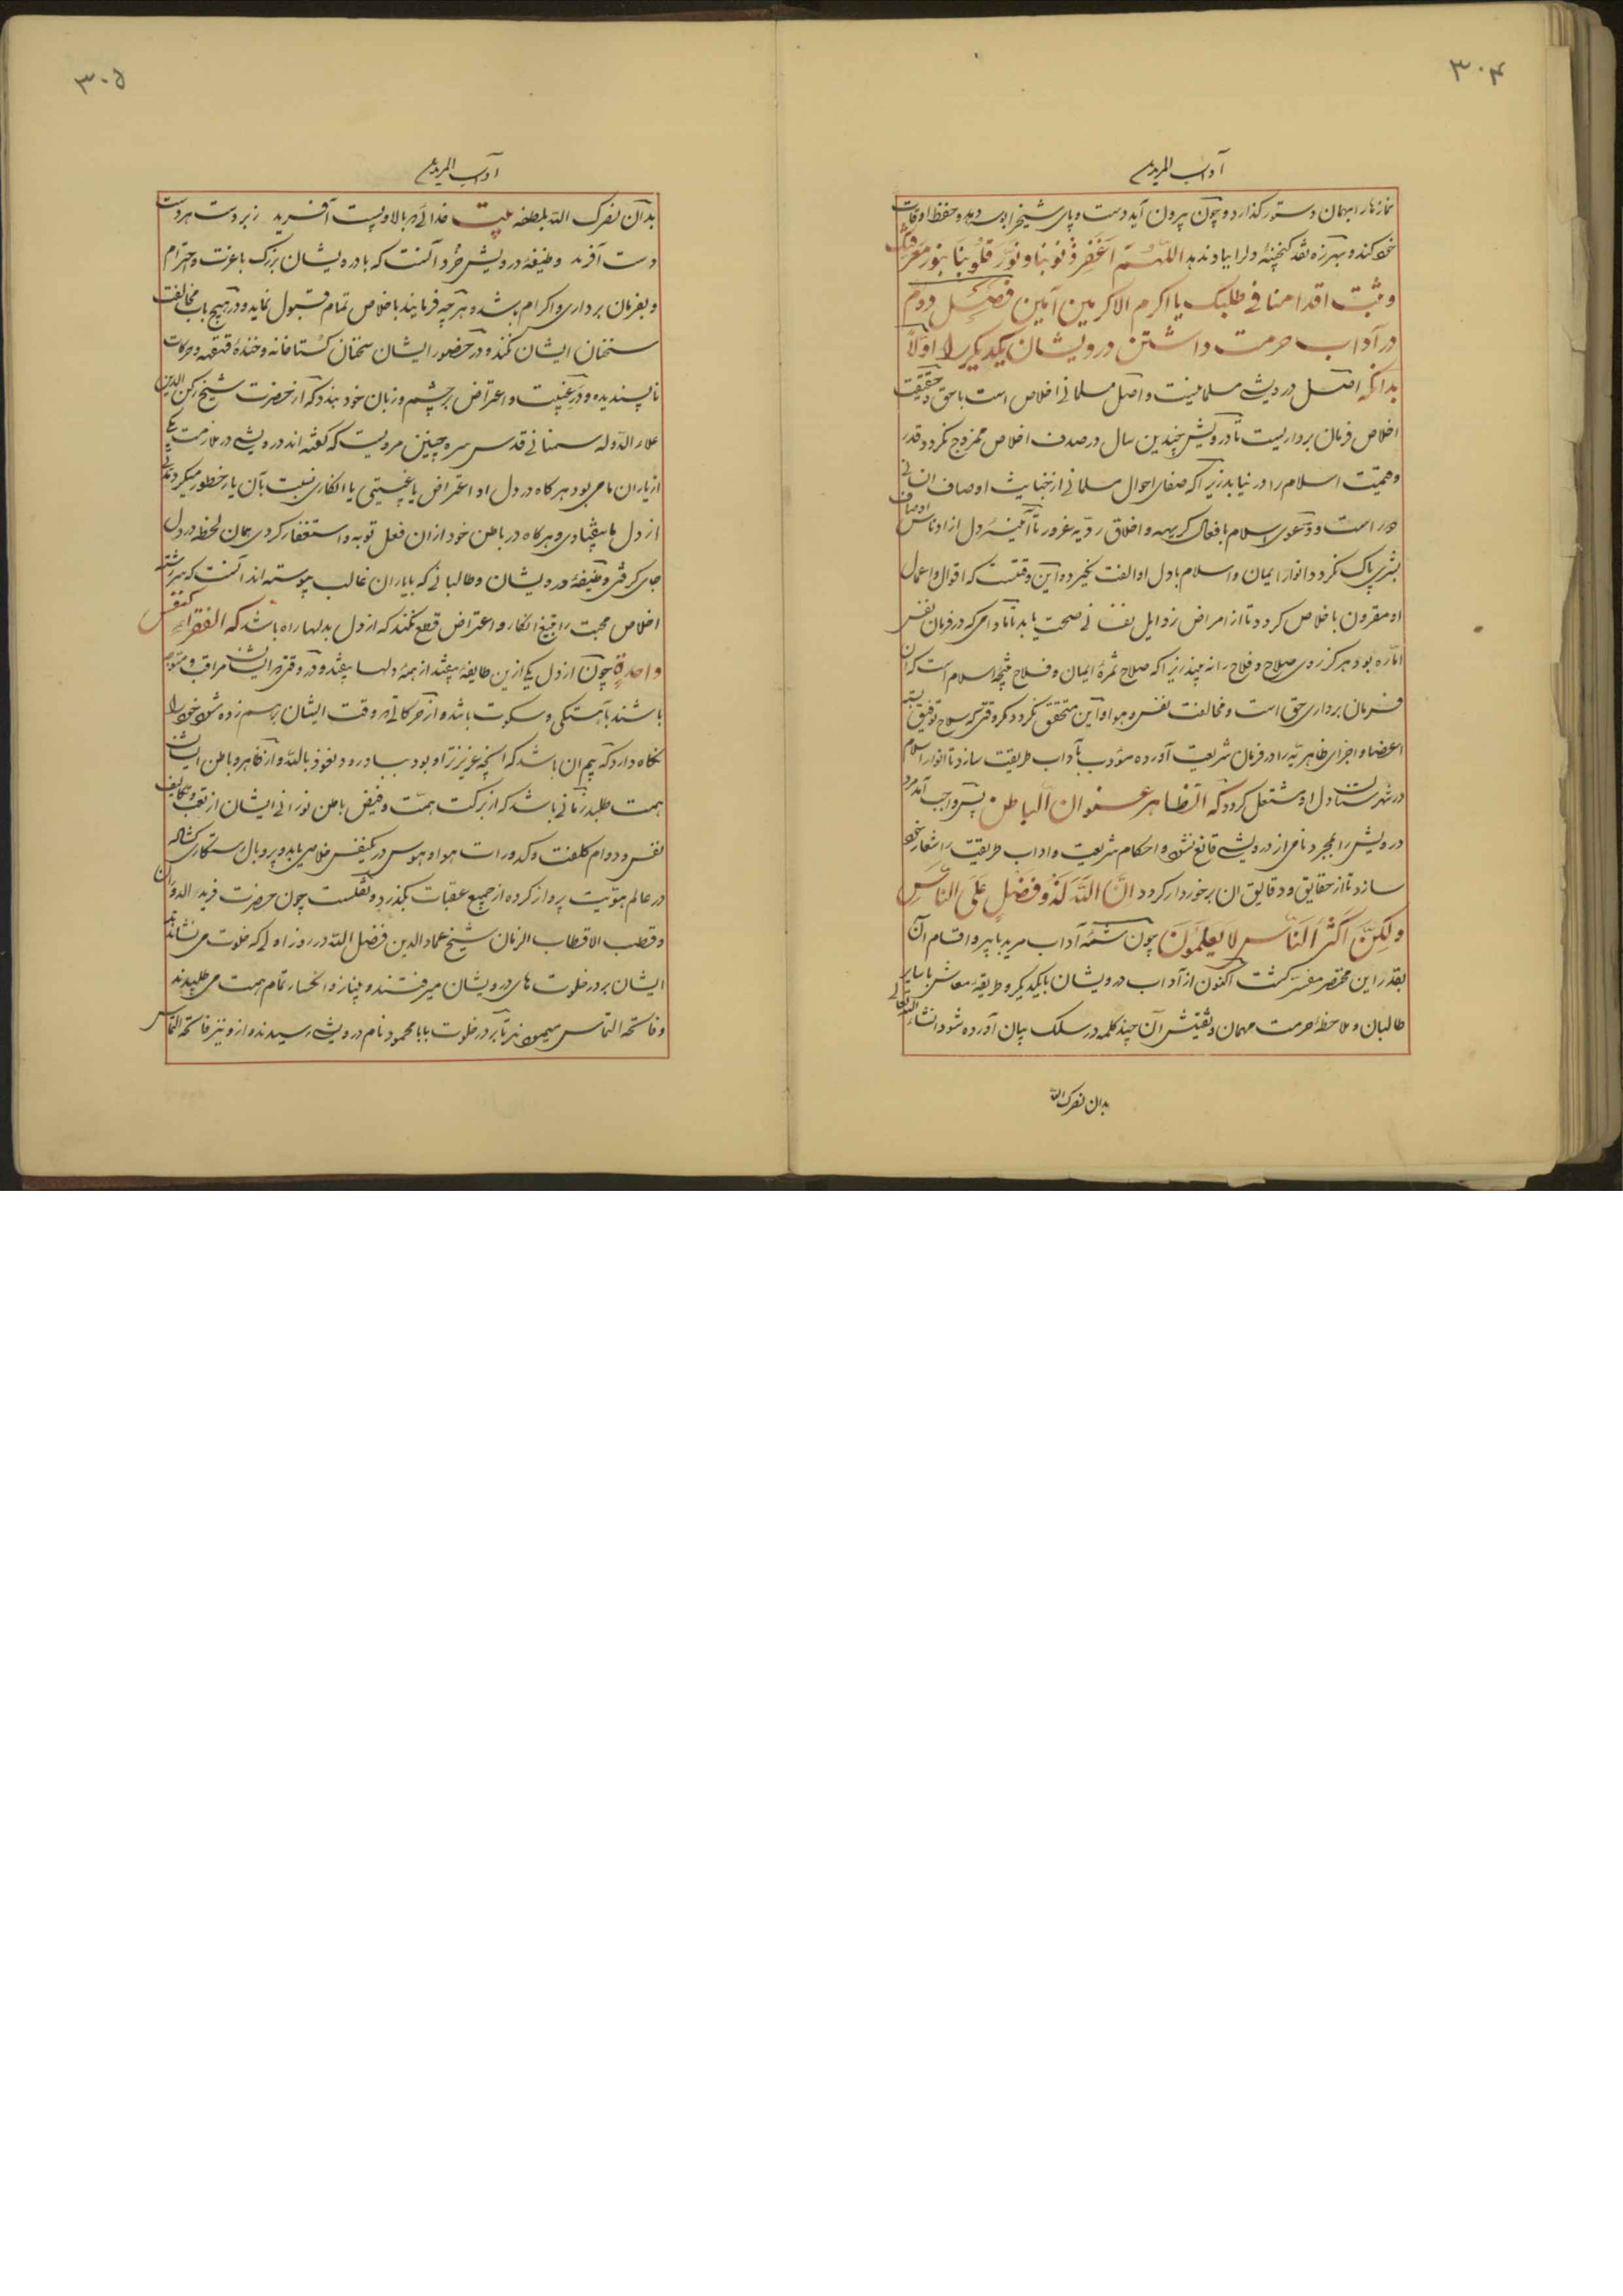 ۳۰۴
آداب المریدین
نماز بار ا بمهمان دستور گذارد و چون بیرون آید دست و پای شیخ را بوسه دهد و حفظ اوقات
خود کند و بهرزه نقد گنجینهٔ دل را بباد ندهد اللّهمّ اغفر ذنوبنا و نوّر قلوبنا بنور معرفتک
و ثبت اقدامنا فی طلبک یا اکرم الاکرمین آمین فصل دوم
در آداب حرمت داشتن درویشان یکدیگر را اوّلاً
بدانکه اصل درویشی مسلمانیست و اصل مسلمانی اخلاص است با حق و حقیقت
اخلاص فرمان برداریست تا درویش چندین سال در صدف اخلاص ممزوج نگردد قدر
و قیمت اسلام را درنیابد زیرا که صفای احوال مسلمانی از خباثت اوصاف انسانی
دور است و دعوی اسلام با فعال کریهه و اخلاق ردّیه غرور تا آئینهٔ دل از ادناس اوصاف
بشری پاک نگردد انوار ایمان و اسلام با دل او الفت نگیرد و این وقتست که اقوال و اعمال
او مقرون باخلاص گردد تا از امراض رذایل نفسانی صحت یابد تا مادامی که در فرمان نفس
امّاره بود هرگز روی صلاح و فلاح را نه بیند زیرا که صلاح ثمرهٔ ایمان و فلاح نتیجهٔ اسلام است که آن
فرمان برداری حق است و مخالفت نفس و هوا و این متحقق نگردد مگر وقتی که سلاح توفیق بسته
اعضا و اجزای ظاهریّه را در فرمان شریعت آورده مؤدب بآداب طریقت سازد تا انوار اسلام
در شهرستان دل او مشتعل گردد که الظاهر عنوان الباطن پس واجب آمد مرد
درویش را بمجرد نامی از درویشی قانع نشود و احکام شریعت و اداب طریقت را شعار خود
سازد تا از حقایق و دقایق ان برخوردار گردد انّ اللّه لذو فضل علی الناس
ولکنّ اکثر الناس لا یعلمون چون شمّهٔ آداب مرید با پیر و اقسام آن
بقدر این مختصر مفسّر گشت اکنون از آداب درویشان با یکدیگر و طریقهٔ معاش با سایر
طالبان و ملاحظهٔ حرمت مهمان و تفتیش آن چند کلمه در سلک بیان آورده شود انشاءاللّه تعالی
بدان نصرک اللّه
۳۰۵
آداب المریدین
بدان نصرک اللّه بلطفه بیت خدائی که بالا و پست آفرید زبردست هر دست
دست آفرید وظیفهٔ درویش خُرد آنست که با درویشان بزرگ باعزت و احترام
و بفرمان برداری و اکرام باشد و هر چه فرمایند باخلاص تمام قبول نماید و در هیچ باب مخالفت
سخنان ایشان نکند و در حضور ایشان سخنان گستاخانه و خندهٔ قهقهه و حرکات
ناپسندیده و در غیبت و اعتراض بر چشم و زبان خود ببندد که از حضرت شیخ رکن الدین
علاء الدّوله سمنانی قدس سره چنین مرویست که گفته اند درویشی در ملازمت یکی
از یاران ما می بود هرگاه در دل او اعتراض یا غیبتی یا انکاری نسبت بآن یار خطور میکردی
از دل ما بیفتادی و هرگاه در باطن خود از ان فعل توبه و استغفار کردی همان لحظه در دل
جای گرفتی وظیفهٔ درویشان و طالبانی که بایاران غالب پیوسته اند آنست که سررشته
اخلاص محبت را بتیغ انکار و اعتراض قطع نکنند که از دل بدلها راه باشد که الفقراء کنفس
واحدة چون از دل یکی ازین طایفه بیفتد از همهٔ دلها بیفتد و در وقتی که ایشان مراقب و متوجه
باشند بآهستگی و سکوت باشد و از حرکاتی که وقت ایشان برهم زده شود خود را
نگاه دارد که بیم ان باشد که آنچه عزیزتر او بود بباد رود نعوذ باللّه و از ظاهر و باطن ایشان
همت طلبد زمانی باشد که از برکت همّت و فیض باطن نورانی ایشان از تعب و تکالیف
نفس و دوام کلفت و کدورات هوا و هوس در یکنفس خلاصی یابد و پر و بال رستگاری گشاده
در عالم هویت پرواز کرده از جمیع عقبات بگذرد و نقلست چون حضرت فرید الدوران
و قطب الاقطاب الزمان شیخ عماد الدین فضل اللّه در روز اولی که خلوت می نشاندند
ایشان بر در خلوت های درویشان میرفتند و بنیاز و انکسار تمام همت می طلبیدند
و فاتحه التماس مینمودند تا بر در خلوت بابا محمود نام درویشی رسیدند و از و نیز فاتحه التماس